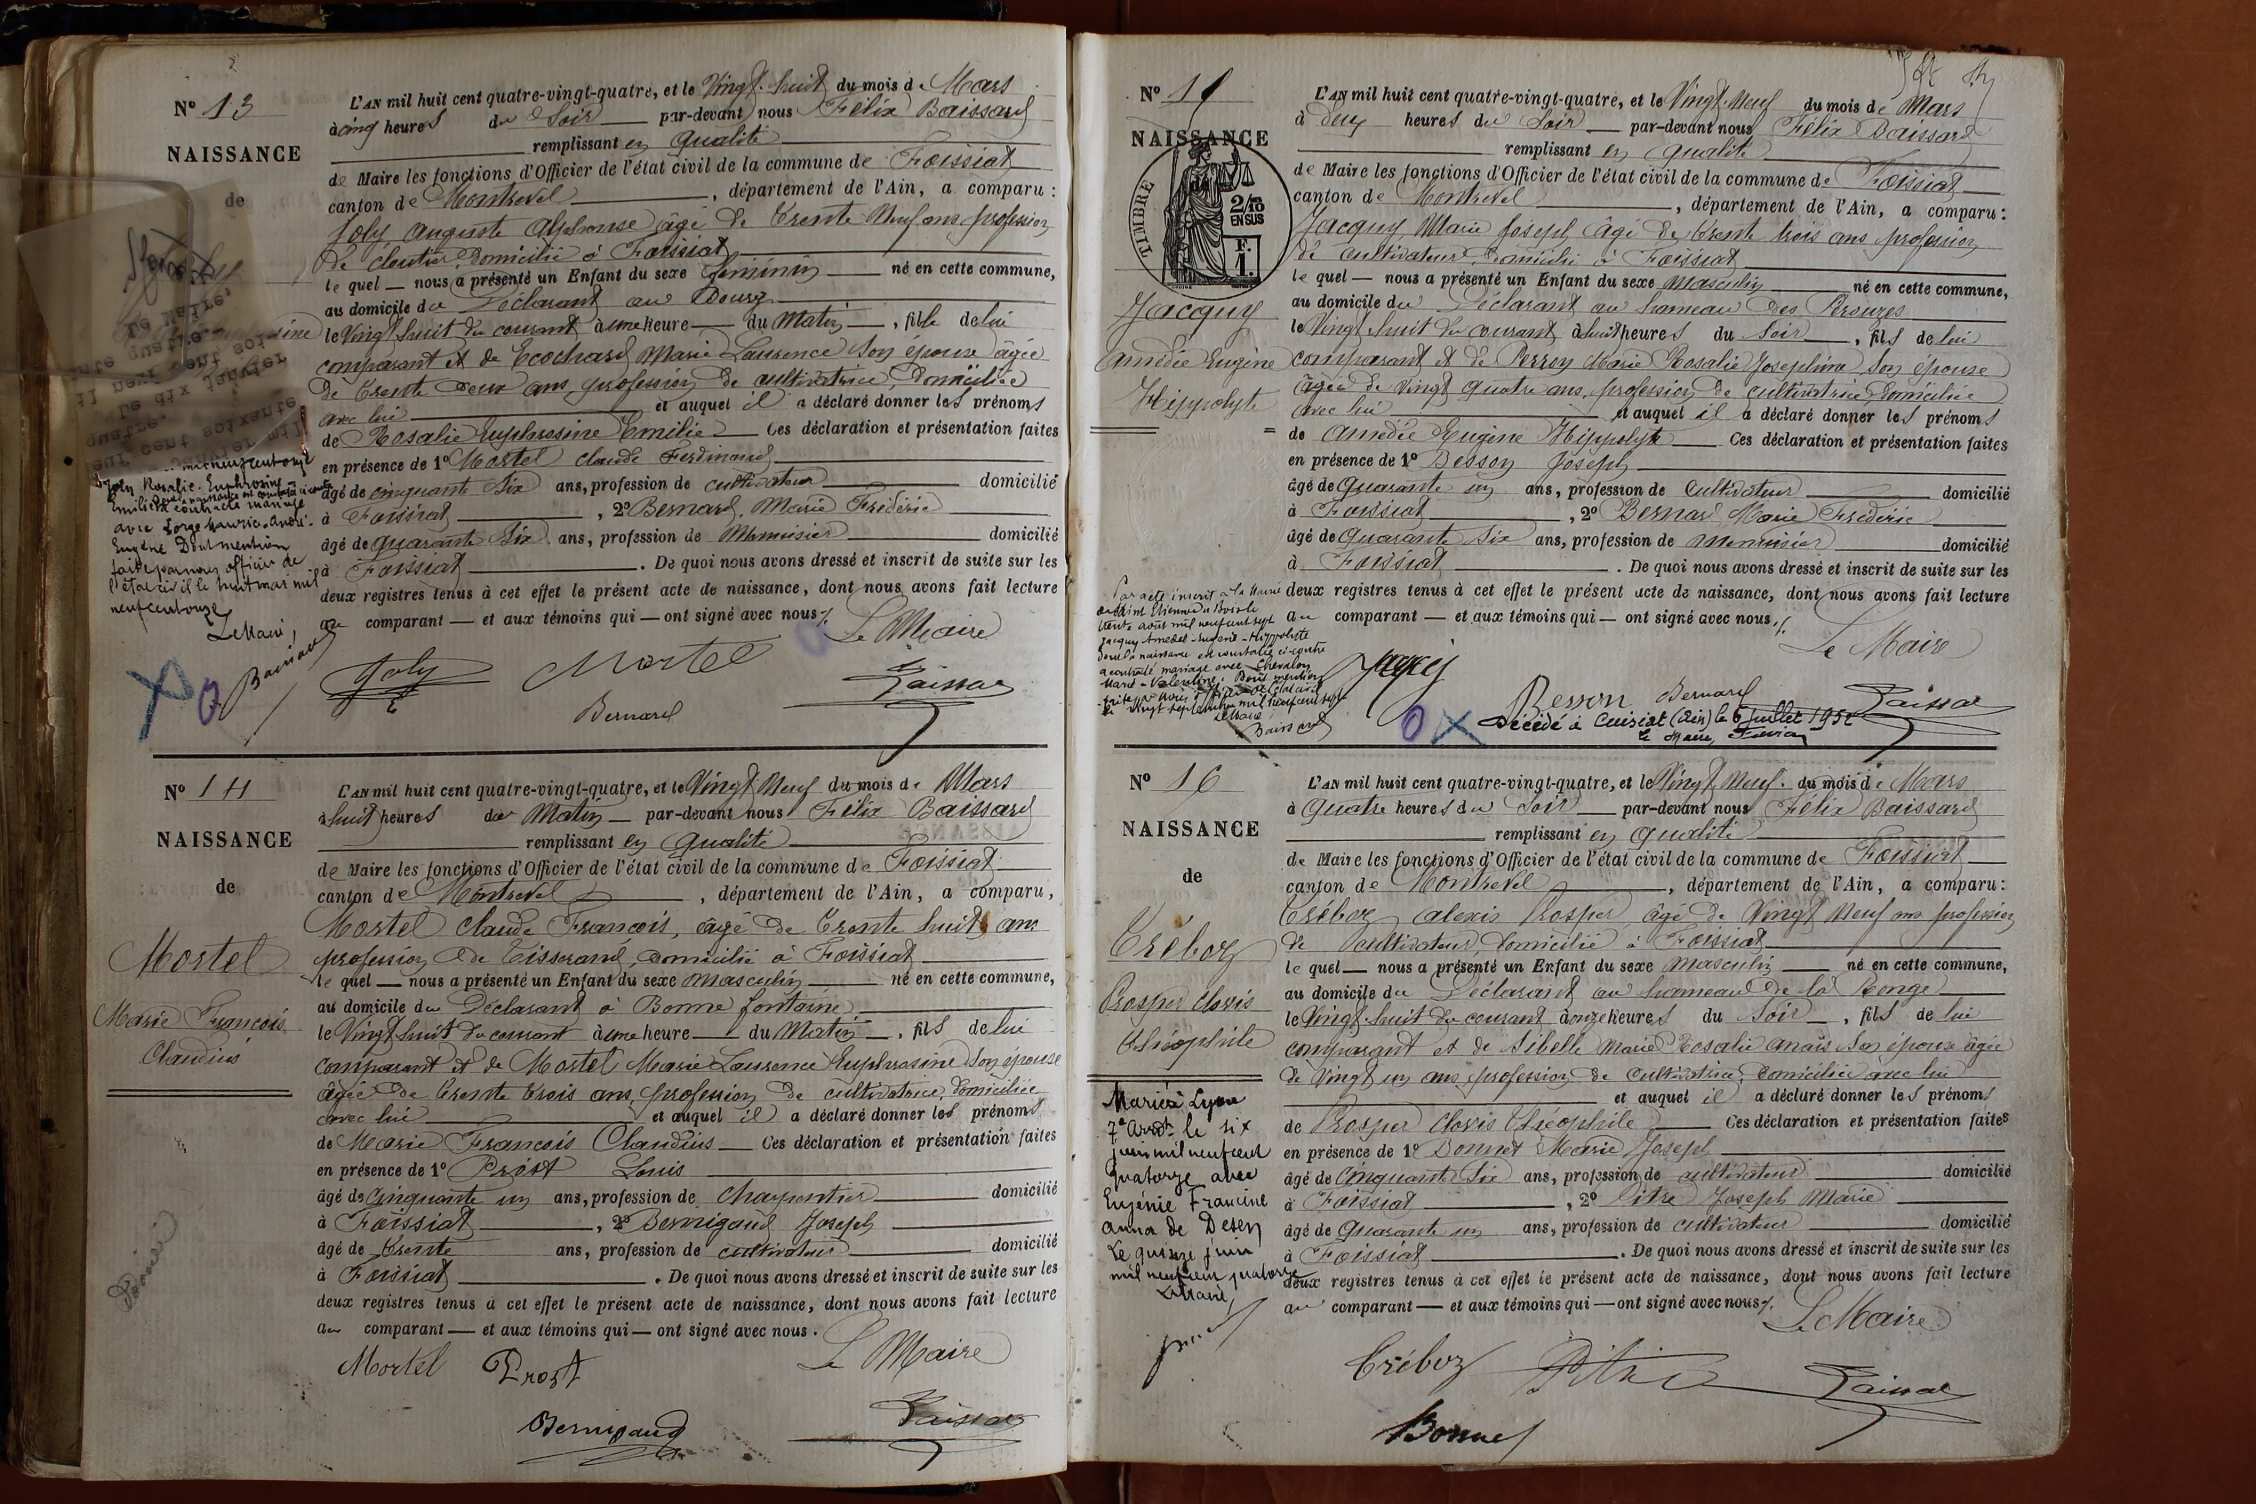 N° 13
NAISSANCE
de
L'AN mil huit cent quatre-vingt-quatre, et le Vingt huit du mois de Mars
à cinq heures du Soir par-devant nous Félix Baissard
remplissant en qualité
de Maire les fonctions d'Officier de l'état civil de la commune de Foissiat
canton de Montrevel, département de l'Ain, a comparu :
Joly Auguste Alphonse âgé de Trente Neuf ans profession
de cloutier, domicilié à Foissiat
le quel nous a présenté un Enfant du sexe féminin né en cette commune,
au domicile du Déclarant au
le Vingt huit du courant à une heure du Matin, fille de lui
comparant et de Ecochard Marie Laurence son épouse âgée
de Trente deux ans, profession de cultivatrice, domiciliée
avec lui et auquel il a déclaré donner les prénoms
de Rosalie Euphrosine Emilie Ces déclaration et présentation faites
en présence de 1° Mortel Claude Ferdinand
âgé de cinquante Six ans, profession de cultivateur domicilié
à Foissiat, 2° Bernard, Marie Frédéric
âgé de quarante Six ans, profession de Menuisier domicilié
à Foissiat. De quoi nous avons dressé et inscrit de suite sur les
deux registres tenus à cet effet le présent acte de naissance, dont nous avons fait lecture
au comparant et aux témoins qui ont signé avec nous
Le Maire
Joly Mortel Baissard
Bernard
le Maire,
il neuf cent soi
Le dix janvier
quatre.
cent soixante
janvier mil
Joly Rosalie. Euphrosine
Emilie dont la naissance est constatée ci-contre
a contracté mariage
avec Lorge Maurice-André-
Eugène Dont mention
faite par nous officier de
l'état civil le huit mai mil
neuf cent onze
Le Maire,
Baissard
N° 14
NAISSANCE
de
Mortel
Marie François
Claudius
L'AN mil huit cent quatre-vingt-quatre, et le Vingt Neuf du mois de Mars
à huit heures du Matin par-devant nous Félix Baissard
remplissant en qualité
de Maire les fonctions d'Officier de l'état civil de la commune de Foissiat
canton de Montrevel, département de l'Ain, a comparu,
Mortel Claude François, âgé de Trente huit ans
profession de Tisserand, domicilié à Foissiat
le quel nous a présenté un Enfant du sexe masculin né en cette commune,
au domicile du Déclarant à Bonne fontaine
le Vingt huit du courant à une heure du Matin, fils de lui
comparant et de Mortel Marie Laurence Euphrosine son épouse
âgée de Trente trois ans, profession de cultivatrice, domiciliée
avec lui et auquel il a déclaré donner les prénoms
de Marie François Claudius Ces déclaration et présentation faites
en présence de 1° Prost Louis
âgé de Cinquante un ans, profession de Charpentier domicilié
à Foissiat, 2° Bernigaud Joseph
âgé de Trente ans, profession de cultivateur domicilié
à Foissiat. De quoi nous avons dressé et inscrit de suite sur les
deux registres tenus à cet effet le présent acte de naissance, dont nous avons fait lecture
au comparant et aux témoins qui ont signé avec nous.
Le Maire
Mortel Prost
Bernigaud Baissard
N° 15
NAISSANCE
TIMBRE
2/10 EN SUS
F. 1.
Jacquy
Amédée Eugène
Hippolyte
L'AN mil huit cent quatre-vingt-quatre, et le Vingt Neuf du mois de Mars
à deux heures du Soir par-devant nous Félix Baissard
remplissant en qualité
de Maire les fonctions d'Officier de l'état civil de la commune de Foissiat
canton de Montrevel, département de l'Ain, a comparu :
Jacquy Marie Joseph âgé de trente trois ans profession
de cultivateur, domicilié à Foissiat
le quel nous a présenté un Enfant du sexe Masculin né en cette commune,
au domicile du Déclarant au hameau des Perouzes
le Vingt huit du courant à huit heures du Soir, fils de lui
comparant et de Perron Marie Rosalie Josephine Son épouse
âgée de vingt quatre ans, profession de cultivatrice domiciliée
avec lui et auquel il a déclaré donner les prénoms
de Amédée Eugène Hippolyte Ces déclaration et présentation faites
en présence de 1° Besson Joseph
âgé de Quarante un ans, profession de Cultivateur domicilié
à Foissiat, 2° Bernard Marie Frédéric
âgé de Quarante Six ans, profession de menuisier domicilié
à Foissiat. De quoi nous avons dressé et inscrit de suite sur les
deux registres tenus à cet effet le présent acte de naissance, dont nous avons fait lecture
au comparant et aux témoins qui ont signé avec nous
Le Maire
Jacquy
Besson Bernard Baissard
Décédé à Cuisiat (Ain) le 6 juillet 195
Le Maire,
Par acte inscrit à la Mairie
de Saint Etienne du Bois le
trente août mil neuf cent sept
Jacquy Amédée-Eugène-Hippolyte
dont la naissance est constatée ci-contre
a contracté mariage avec Chevalon
Marie-Valentine. Dont mention
faite par nous officier de l'état civil
le vingt septembre mil neuf cent sept
Le Maire
Baissard
N° 16
NAISSANCE
de
Tréboz
Prosper Clovis
Théophile
L'AN mil huit cent quatre-vingt-quatre, et le Vingt Neuf du mois de Mars
à Quatre heures du Soir par-devant nous Félix Baissard
remplissant en qualité
de Maire les fonctions d'Officier de l'état civil de la commune de Foissiat
canton de Montrevel, département de l'Ain, a comparu :
Tréboz Alexis Prosper âgé de Vingt Neuf ans profession
de cultivateur, domicilié à Foissiat
le quel nous a présenté un Enfant du sexe Masculin né en cette commune,
au domicile du Déclarant au hameau de la Ronge
le Vingt huit du courant à onze heures du Soir, fils de lui
comparant et de Sibelle Marie Rosalie Anaïs son épouse âgée
de vingt un ans, profession de Cultivatrice, domiciliée avec lui
et auquel il a déclaré donner les prénoms
de Prosper Clovis Théophile Ces déclaration et présentation faites
en présence de 1° Bonnet Marie Joseph
âgé de Cinquante Six ans, profession de cultivateur domicilié
à Foissiat, 2° Pitre Joseph Marie
âgé de Quarante un ans, profession de cultivateur domicilié
à Foissiat. De quoi nous avons dressé et inscrit de suite sur les
deux registres tenus à cet effet le présent acte de naissance, dont nous avons fait lecture
au comparant et aux témoins qui ont signé avec nous
Le Maire
Tréboz Pitre Baissard
Bonnet
Marié à Lyon
7e Arrdt le six
juin mil neuf cent
quatorze avec
Eugénie Francine
Anna de
Le quinze juin
mil neuf cent quatorze
Le Maire,